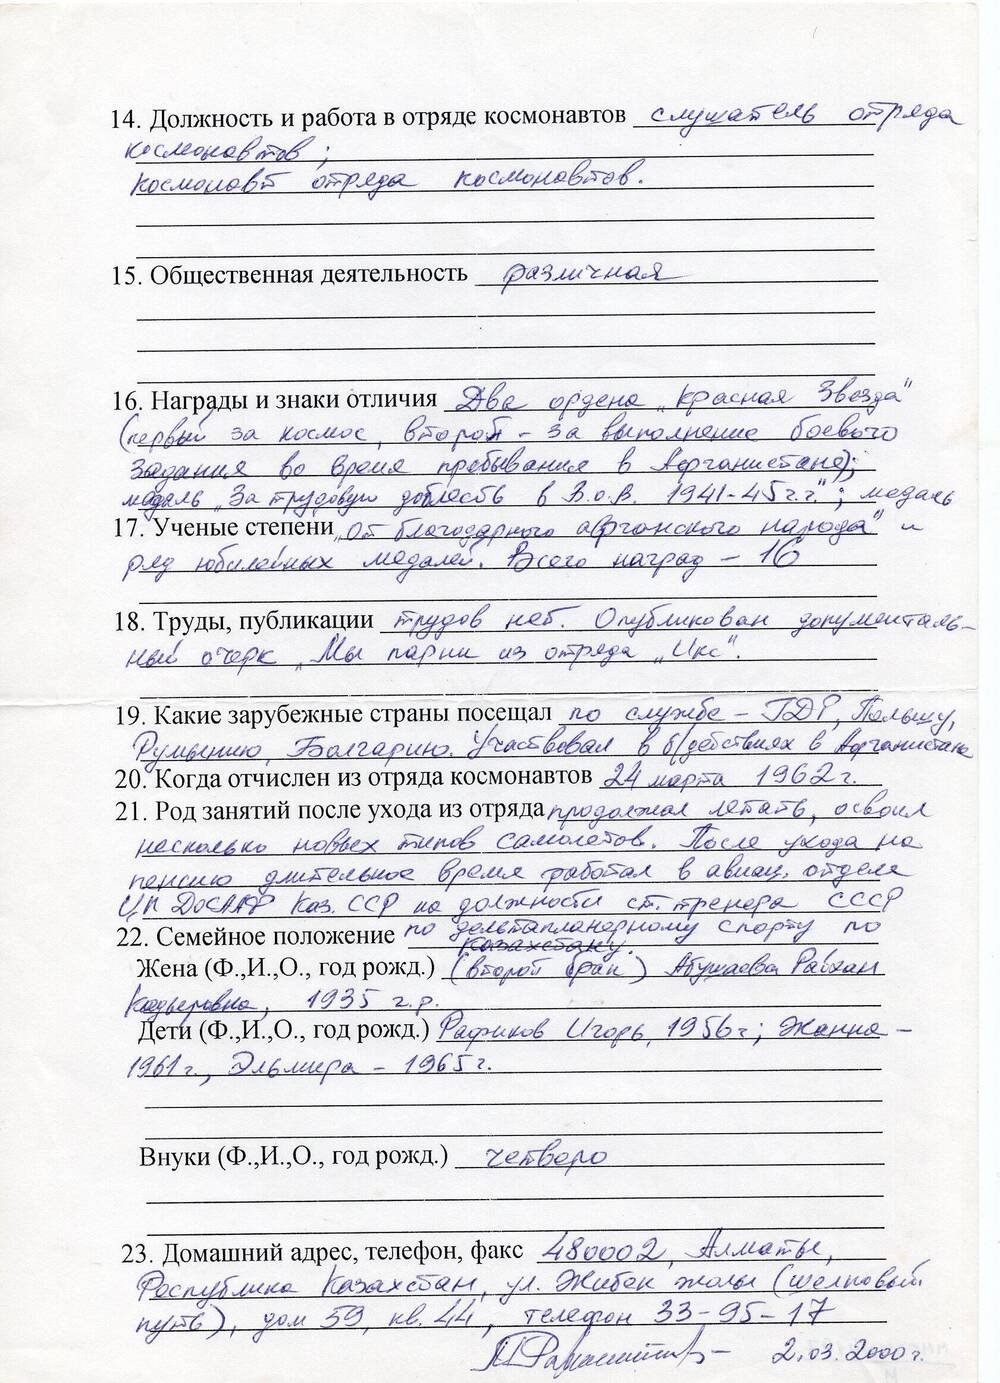 14. Должность и работа в отряде космонавтов слушатель отряда
космонавтов;
космонавт отряда космонавтов.
15. Общественная деятельность различная
16. Награды и знаки отличия Два ордена „Красная Звезда"
(первый за космос, второй - за выполнение боевого
задания во время пребывания в Афганистане);
медаль „За трудовую доблесть в В.о.в. 1941-45 г.г."; медаль
17. Ученые степени „От благодарного афганского народа" и
ряд юбилейных медалей. Всего наград - 16
18. Труды, публикации трудов нет. Опубликован документаль-
ный очерк „Мы парни из отряда „Икс".
19. Какие зарубежные страны посещал по службе - ГДР, Польшу,
Румынию, Болгарию. Участвовал в б/действиях в Афганистане
20. Когда отчислен из отряда космонавтов 24 марта 1962 г.
21. Род занятий после ухода из отряда продолжал летать, освоил
несколько новых типов самолетов. После ухода на
пенсию длительное время работал в авиац. отделе
ЦК ДОСААФ Каз. ССР на должности ст. тренера СССР
22. Семейное положение по дельтапланерному спорту по
Казахстану.
Жена (Ф.,И.,О., год рожд.) (второй брак) Абушаева Райхан
Кадыровна, 1935 г.р.
Дети (Ф.,И.,О., год рожд.) Рафиков Игорь, 1956 г; Жанна -
1961 г., Эльмира - 1965 г.
Внуки (Ф.,И.,О., год рожд.) четверо
23. Домашний адрес, телефон, факс 480002, Алматы,
Республика Казахстан, ул. Жибек жолы (шелковый
путь), дом 59, кв. 44, телефон 33-95-17
2.03.2000 г.